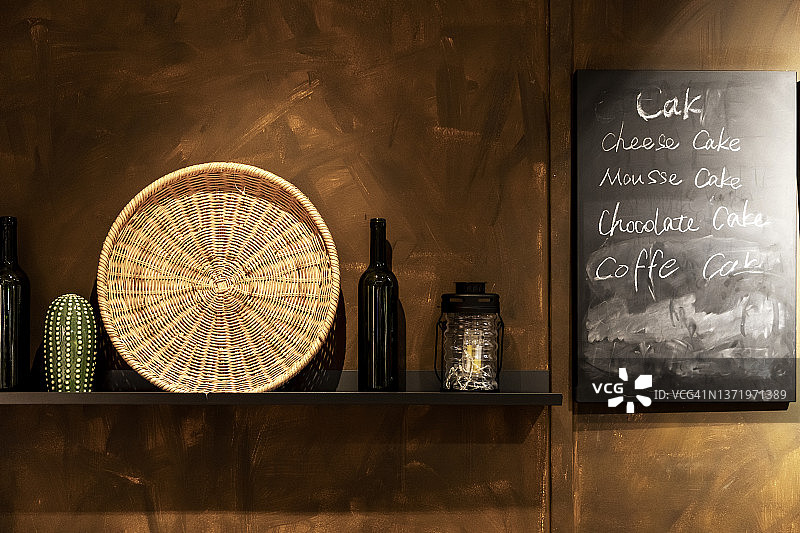 Cak
Cheese Cake
Mousse Cake
Chocolate Cake
Coffe Cak
VCG VCG41N1371971389